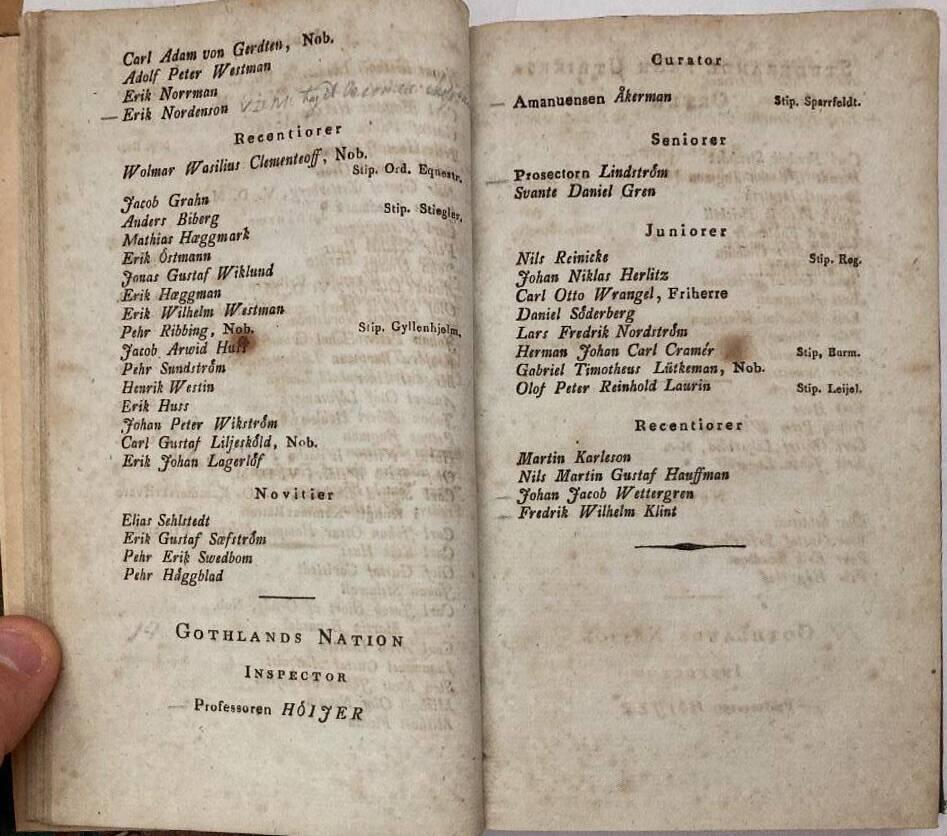 Carl Adam von Gerdten, Nob.
Adolf Peter Westman
Erik Norrman
Erik Nordenson
Recentiorer
Wolmar Wasilius Clementeoff, Nob.
Stip. Ord. Equestr.
Jacob Grahn
Anders Biberg Stip. Stiegler.
Mathias Hæggmark
Erik Östmann
Jonas Gustaf Wiklund
Erik Hæggman
Erik Wilhelm Westman
Pehr Ribbing, Nob. Stip. Gyllenhjelm.
Jacob Arwid Huss
Pehr Sundström
Henrik Westin
Erik Huss
Johan Peter Wikström
Carl Gustaf Liljesköld, Nob.
Erik Johan Lagerlöf
Novitier
Elias Sehlstedt
Erik Gustaf Sæfström
Pehr Erik Swedbom
Pehr Häggblad
GOTHLANDS NATION
INSPECTOR
Professoren HÖIJER
Curator
Amanuensen Åkerman Stip. Sparrfeldt.
Seniorer
Prosectorn Lindström
Svante Daniel Gren
Juniorer
Nils Reinicke Stip. Reg.
Johan Niklas Herlitz
Carl Otto Wrangel, Friherre
Daniel Söderberg
Lars Fredrik Nordström
Herman Johan Carl Cramér Stip, Burm.
Gabriel Timotheus Lütkeman, Nob.
Olof Peter Reinhold Laurin Stip. Leijel.
Recentiorer
Martin Karleson
Nils Martin Gustaf Hauffman
Johan Jacob Wettergren
Fredrik Wilhelm Klint